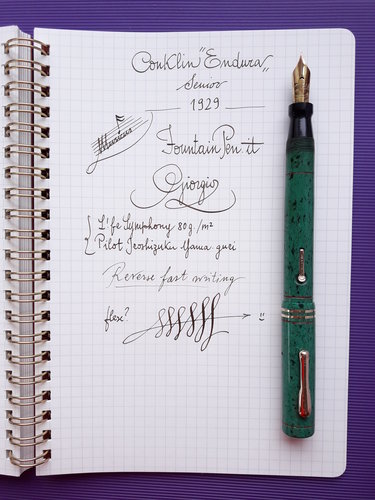 Conklin "Endura"
Senior
1929
Musicus
FountainPen.it
Giorgio
Life Symphony 80g/m²
Pilot Iroshizuku Yama guri
Reverse fast writing
flex?